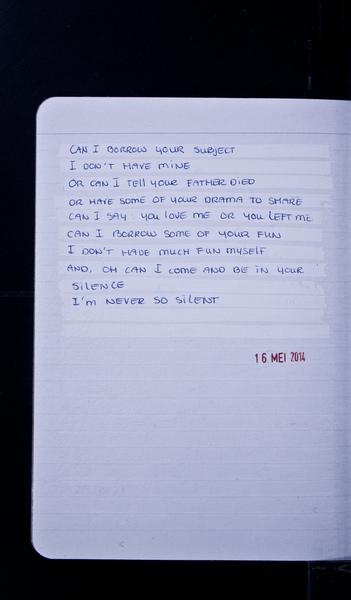 CAN I BORROW YOUR SUBJECT
I DON'T HAVE MINE
OR CAN I TELL YOUR FATHER DIED
OR HAVE SOME OF YOUR DRAMA TO SHARE
CAN I SAY YOU LOVE ME OR YOU LEFT ME
CAN I BORROW SOME OF YOUR FUN
I DON'T HAVE MUCH FUN MYSELF
AND, OH CAN I COME AND BE IN YOUR
SILENCE
I'M NEVER SO SILENT
16 MEI 2014